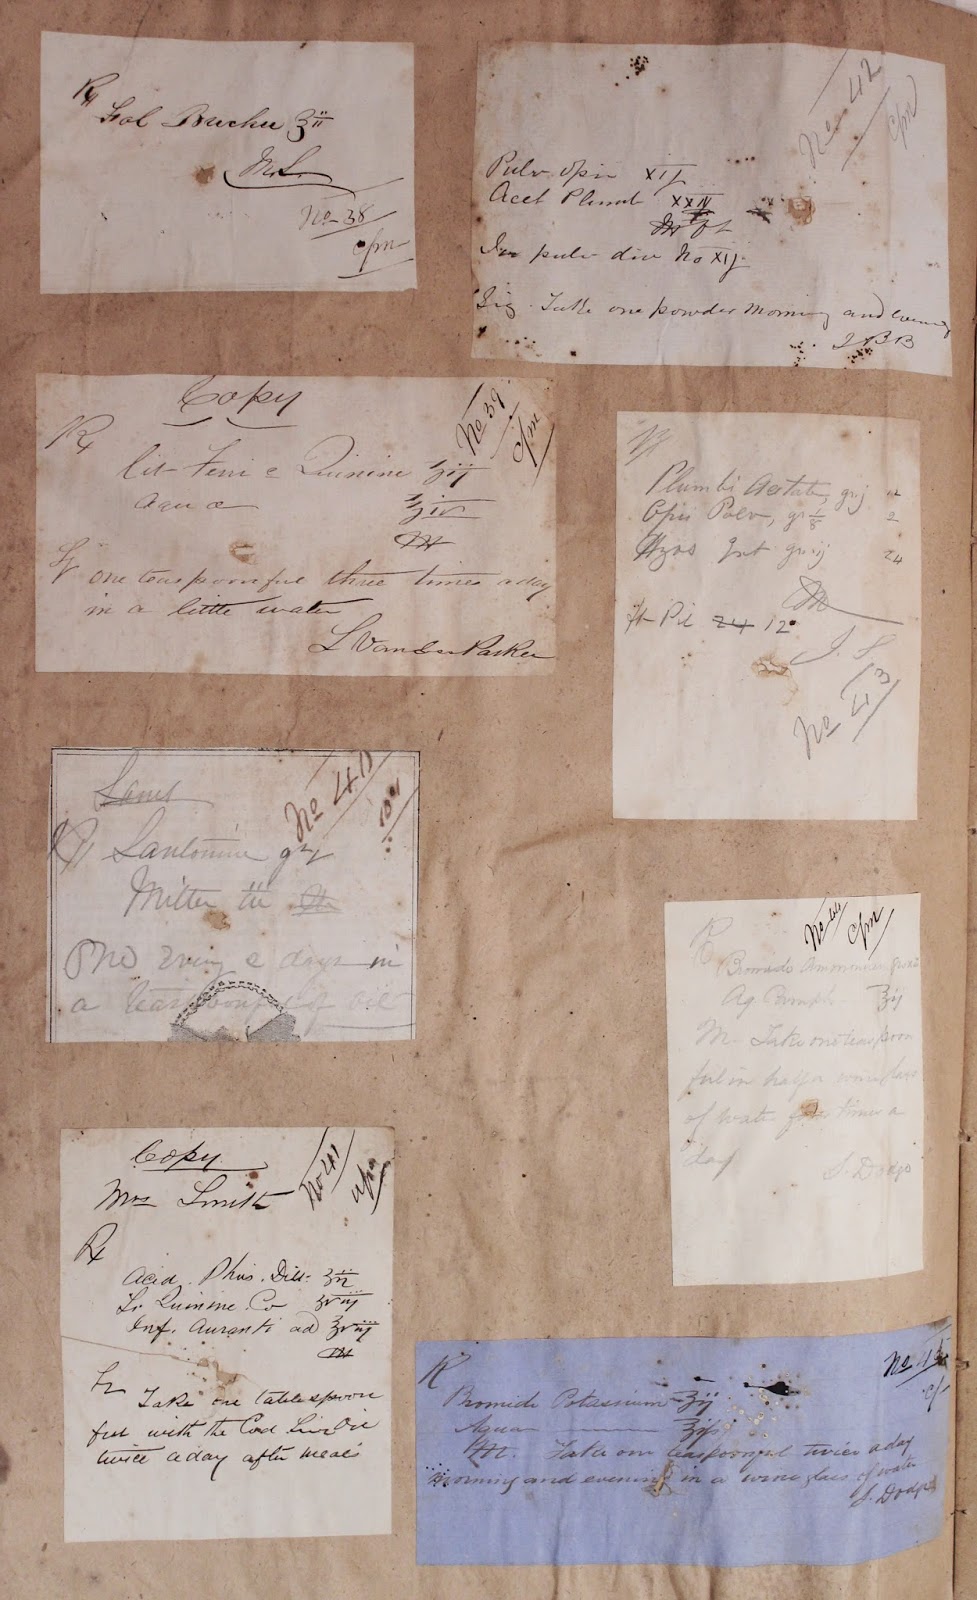 Rx
Fol Buchu ʒii
M.S.
No 38
cpm
No 42
cpm
Pulv Opii xij
Acet Plumb xxiv
M ft
In pulv div No xij
Sig Take one powder morning and evening
Copy
No 39
cpm
Rx
Cit Ferri c Quinine ʒij
Aqua ℥iv
M
one teaspoonful three times a day
in a little water
L VanderParker
Rx
Plumbi Acetate, grj 12
Opii Pulv, gr 1/8 2
Hyos Ext grij 24
M
ft Pil 24 12
J. S.
No 43
No 40
Rx Santonine
Mitte
One every 2 days in
a teaspoonful of oil
No 44
cpm
Rx
Bromide Ammonium
Aq ʒij
M. Take one teaspoon
ful in half a wine glass
of wate times a
day
S. Dodge
Copy
No 41
Mrs Smith
Rx
Acid. Phos. Dil. ʒii
Quinine Co ʒviij
Inf. Auranti ad ℥viij
M
Take one tablespoon
ful with the Cod Liv Oil
twice a day after meals
No 45
R
Bromide Potassium ʒij
Aqua
M. Take one teaspoonful twice a day
morning and evening in a wine glass of water
S. Dodge